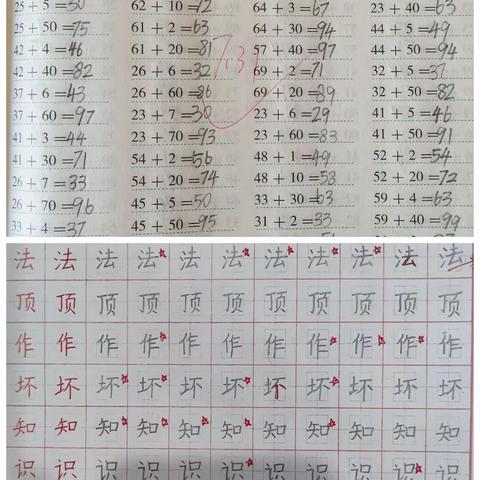 25 + 5 =50 62 + 10 =72 64 + 3 =67 23 + 40 =63
25 + 50 =75 61 + 2 =63 64 + 30 =94 44 + 5 =49
42 + 4 =46 61 + 20 =81 57 + 40 =97 44 + 50 =94
42 + 40 =82 26 + 6 =32 69 + 2 =71 32 + 5 =37
37 + 6 =43 26 + 60 =86 69 + 20 =89 32 + 50 =82
37 + 60 =97 23 + 7 =30 23 + 6 =29 41 + 5 =46
41 + 3 =44 23 + 70 =93 23 + 60 =83 41 + 50 =91
41 + 30 =71 54 + 2 =56 48 + 1 =49 52 + 2 =54
26 + 7 =33 54 + 20 =74 48 + 10 =58 52 + 20 =72
26 + 70 =96 45 + 5 =50 33 + 30 =63 59 + 4 =63
33 + 4 =37 45 + 50 =95 31 + 2 =33 59 + 40 =99
法 法 法 法 法 法 法 法 法 法 法
顶 顶 顶 顶 顶 顶 顶 顶 顶 顶 顶
作 作 作 作 作 作 作 作 作 作 作
坏 坏 坏 坏 坏 坏 坏 坏 坏 坏 坏
知 知 知 知 知 知 知 知 知 知 知
识 识 识 识 识 识 识 识 识 识 识